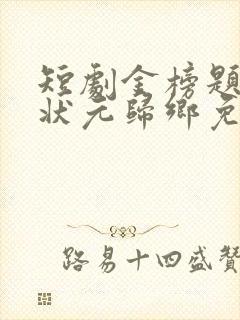 短劇金榜題
狀元歸鄉免
路易十四盛贊